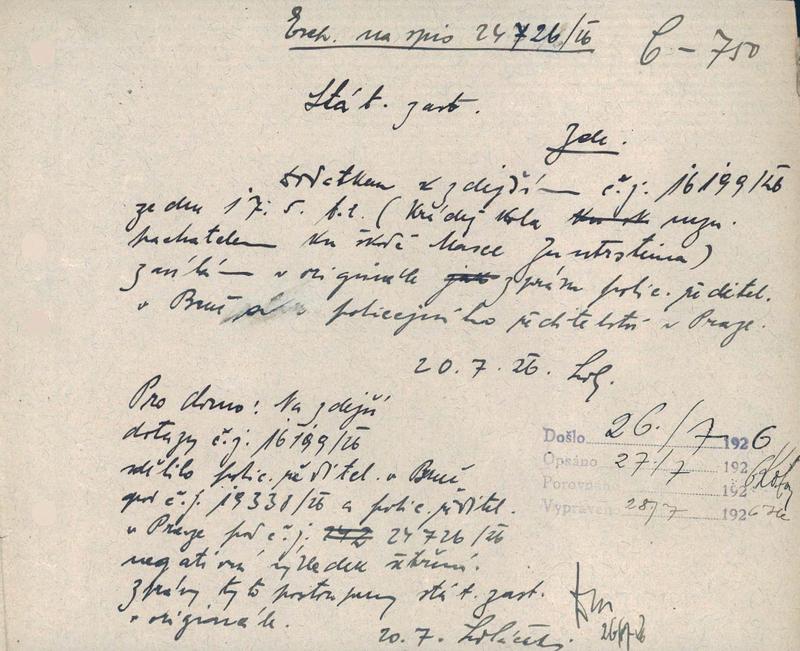 Exh. na spis 24726/26
C – 750
Stát. zast.
Zde.
Dodatkem k zdejším č.j. 16199/26
ze dne 17. 5. t.r. (krádež kola nezn.
pachatelem ku škodě
zasílám v originále zprávu polic. ředitel.
v Brně a policejního ředitelství v Praze.
20. 7. 26.
Pro domo: Na zdejší
dotazy č.j. 16199/26
sdělilo polic. ředitel. v Brně
pod č.j. 19338/26 a polic. ředitel.
v Praze pod č.j. 24726/26
negativní výsledek šetření.
Zprávy tyto postoupeny stát. zast.
v originále.
20. 7.
Došlo 26./7 1926
Opsáno 27./7 192
Porovnáno 192
Vypraveno 28/7 1926